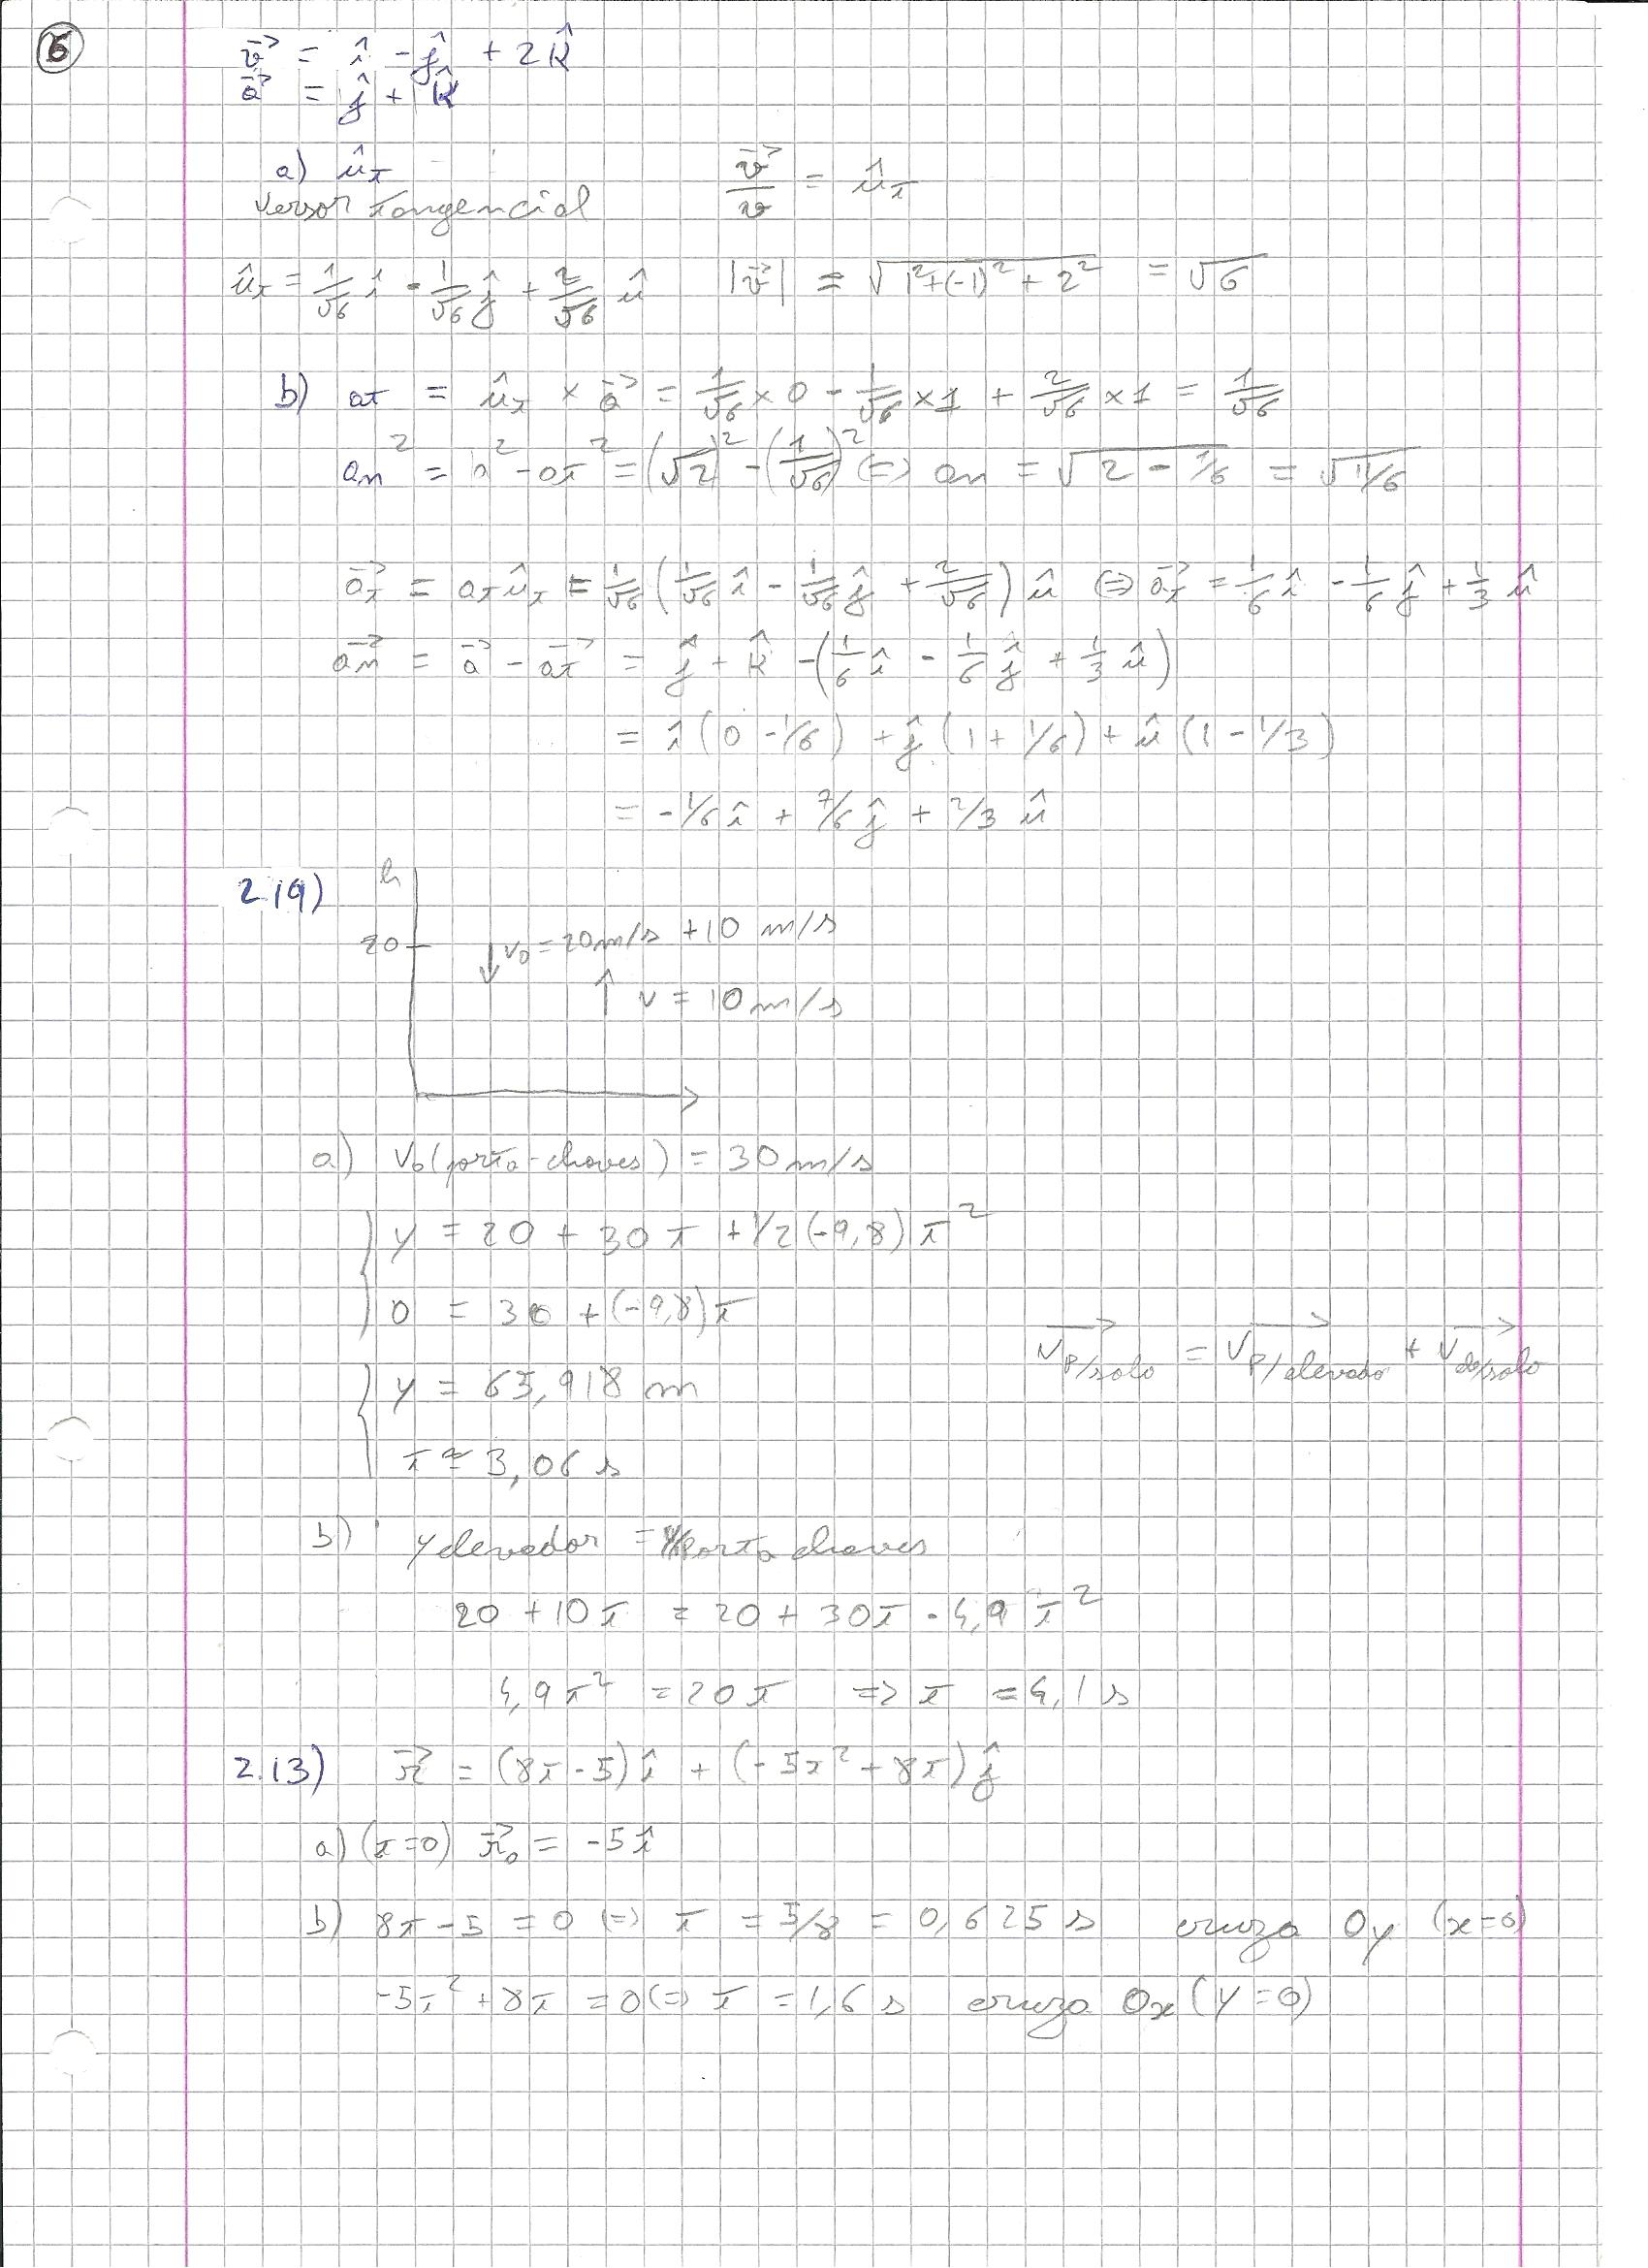 6
v⃗ = î - ĵ + 2k̂
a⃗ = ĵ + k̂
a) û_t
versor tangencial
v⃗/v = û_t
û_t = 1/√6 î - 1/√6 ĵ + 2/√6 û
|v⃗| = √(1²+(-1)²+2²) = √6
b) at = û_t × a⃗ = 1/√6 × 0 - 1/√6 × 1 + 2/√6 × 1 = 1/√6
an² = a² - at² = (√2)² - (1/√6)² (=) an = √(2 - 1/6) = √(11/6)
a⃗t = at û_t = 1/√6 (1/√6 î - 1/√6 ĵ + 2/√6) û (=) a⃗t = 1/6 î - 1/6 ĵ + 1/3 û
a⃗n = a⃗ - a⃗t = ĵ + k̂ - (1/6 î - 1/6 ĵ + 1/3 û)
= î (0 - 1/6) + ĵ (1 + 1/6) + û (1 - 1/3)
= -1/6 î + 7/6 ĵ + 2/3 û
2.(9)
h
20
↓ v0 = 20 m/s + 10 m/s
↑ v = 10 m/s
a) V0 (porta-chaves) = 30 m/s
y = 20 + 30t + 1/2 (-9,8) t²
0 = 30 + (-9,8) t
y = 65,918 m
t ≈ 3,06 s
V⃗P/solo = V⃗P/elevador + V⃗do/solo
b) y elevador = y porta chaves
20 + 10t = 20 + 30t - 4,9 t²
4,9 t² = 20t => t = 4,1 s
2.(3) r⃗ = (8t - 5) î + (-5t² + 8t) ĵ
a) (t=0) r⃗0 = -5 î
b) 8t - 5 = 0 (=) t = 5/8 = 0,625 s cruza Oy (x=0)
-5t² + 8t = 0 (=) t = 1,6 s cruza Ox (y=0)